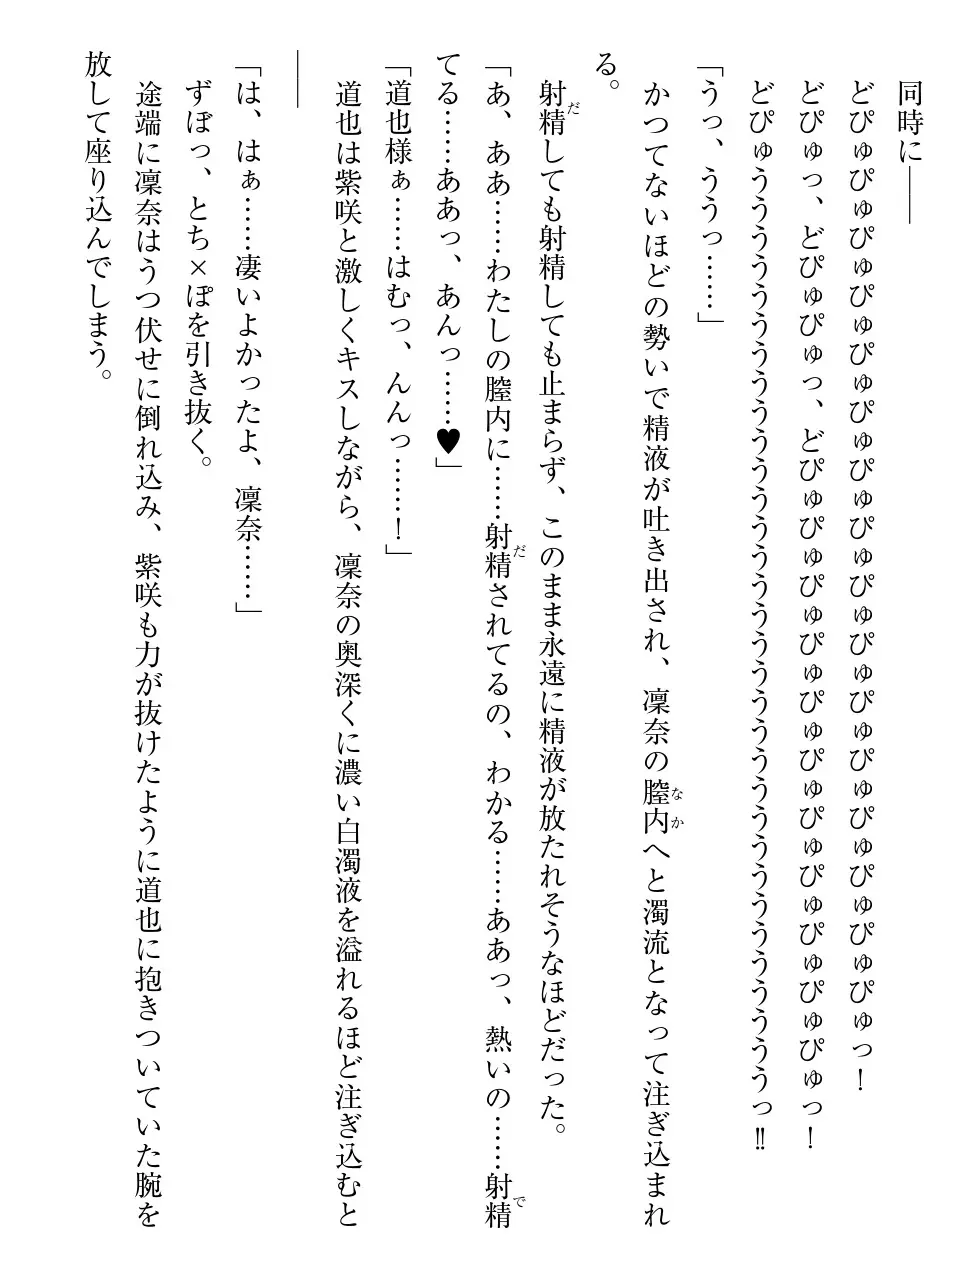 同時に――
どぴゅぴゅぴゅぴゅぴゅぴゅぴゅぴゅぴゅぴゅぴゅぴゅぴゅぴゅぴゅぴゅっ！
どぴゅっ、どぴゅぴゅっ、どぴゅぴゅぴゅぴゅぴゅぴゅぴゅぴゅぴゅぴゅぴゅっ！
どぴゅうううううううううううううううううううううううううううううううううっ‼
「うっ、ううっ……」
かつてないほどの勢いで精液が吐き出され、凜奈の膣内へと濁流となって注ぎ込まれ
る。
射精しても射精しても止まらず、このまま永遠に精液が放たれそうなほどだった。
「あ、ああ……わたしの膣内に……射精されてるの、わかる……ああっ、熱いの……射精
てる……ああっ、あんっ……♥」
「道也様ぁ……はむっ、んんっ……！」
道也は紫咲と激しくキスしながら、凜奈の奥深くに濃い白濁液を溢れるほど注ぎ込むと
――
「は、はぁ……凄いよかったよ、凜奈……」
ずぼっ、とち×ぽを引き抜く。
途端に凜奈はうつ伏せに倒れ込み、紫咲も力が抜けたように道也に抱きついていた腕を
放して座り込んでしまう。